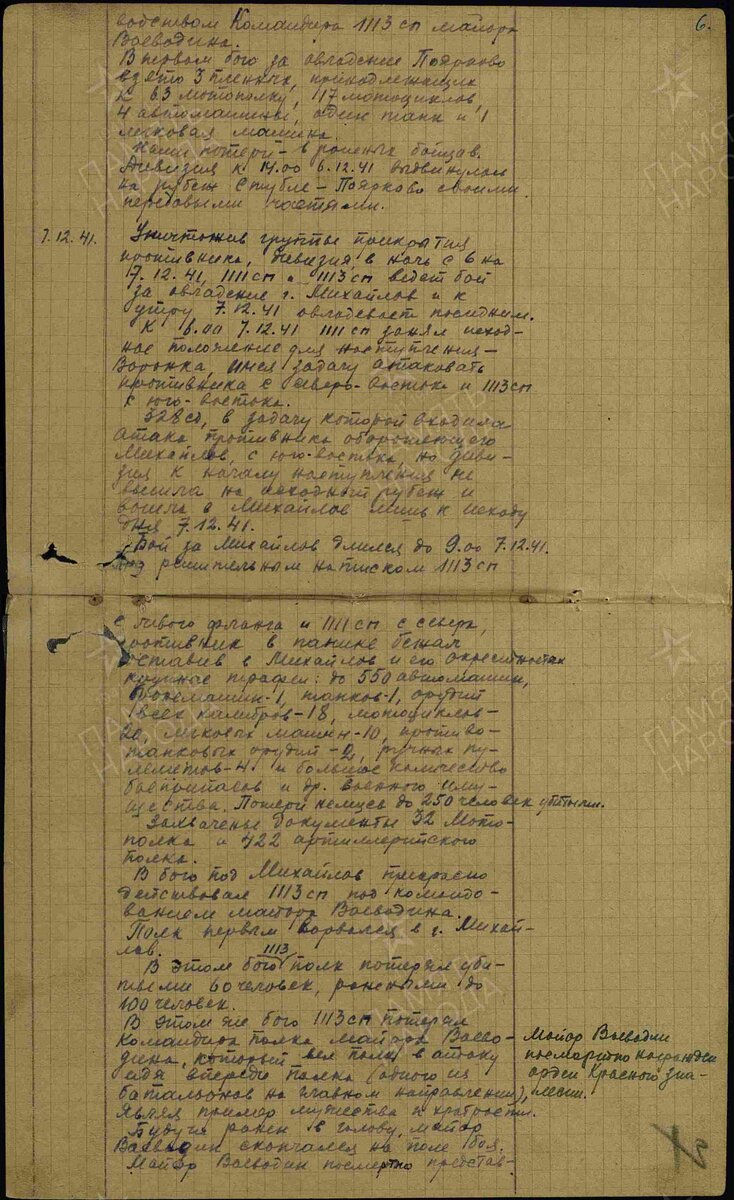 6.
водством Командира 1113 сп майора
Воеводина.
В первом бою за овладение Поярково
взято 3 пленных, принадлежащих
к 63 мотополку, 117 мотоциклов,
4 автомашины, один танк и 1
легковая машина.
Наши потери - 8 раненых бойцов.
Дивизия к 14.00 6.12.41 выдвинулась
на рубеж Стубле - Поярково своими
передовыми частями.
7.12.41. Уничтожив группы прикрытия
противника, дивизия, в ночь с 6 на
7.12.41, 1111 сп и 1113 сп ведет бой
за овладение г. Михайлов и к
утру 7.12.41 овладевает последним.
К 6.00 7.12.41 1111 сп занял исход-
ное положение для наступления -
Воронка, имея задачу атаковать
противника с северо-востока и 1113 сп
с юго-востока.
328 сд, в задачу которой входила
атака противника обороняющего
Михайлов, с юго-востока, но диви-
зия к началу наступления не
вышла на исходный рубеж и
вошла в Михайлов лишь к исходу
дня 7.12.41.
Бой за Михайлов длился до 9.00 7.12.41.
Под решительным натиском 1113 сп
с левого фланга и 1111 сп с севера,
противник в панике бежал
оставив в Михайлов и его окрестностях
крупные трофеи: до 550 автомашин,
бронемашин-1, танков-1, орудий
всех калибров-18, мотоциклов-
20, легковых машин-10, противо-
танковых орудий-2, ручных пу-
леметов-4 и большое количество
боеприпасов и др. военного иму-
щества. Потери немцев до 250 человек убитыми.
Захвачены документы 32 Мото-
полка и 422 артиллерийского
полка.
В бою под Михайлов прекрасно
действовал 1113 сп под командо-
ванием майора Воеводина.
Полк первым ворвался в г. Михай-
лов.
В этом бою 1113 полк потерял уби-
тыми 60 человек, ранеными до
100 человек.
В этом же бою 1113 сп потерял
Командира полка майора Воево-
дина, который вел полк в атаку
идя впереди полка (одного из
батальонов на главном направлении),
являя пример мужества и храбрости.
Будучи ранен в голову, майор
Воеводин скончался на поле боя.
Майор Воеводин посмертно представ-
Майор Воеводин
посмертно награжден
орден Красного зна-
мени.